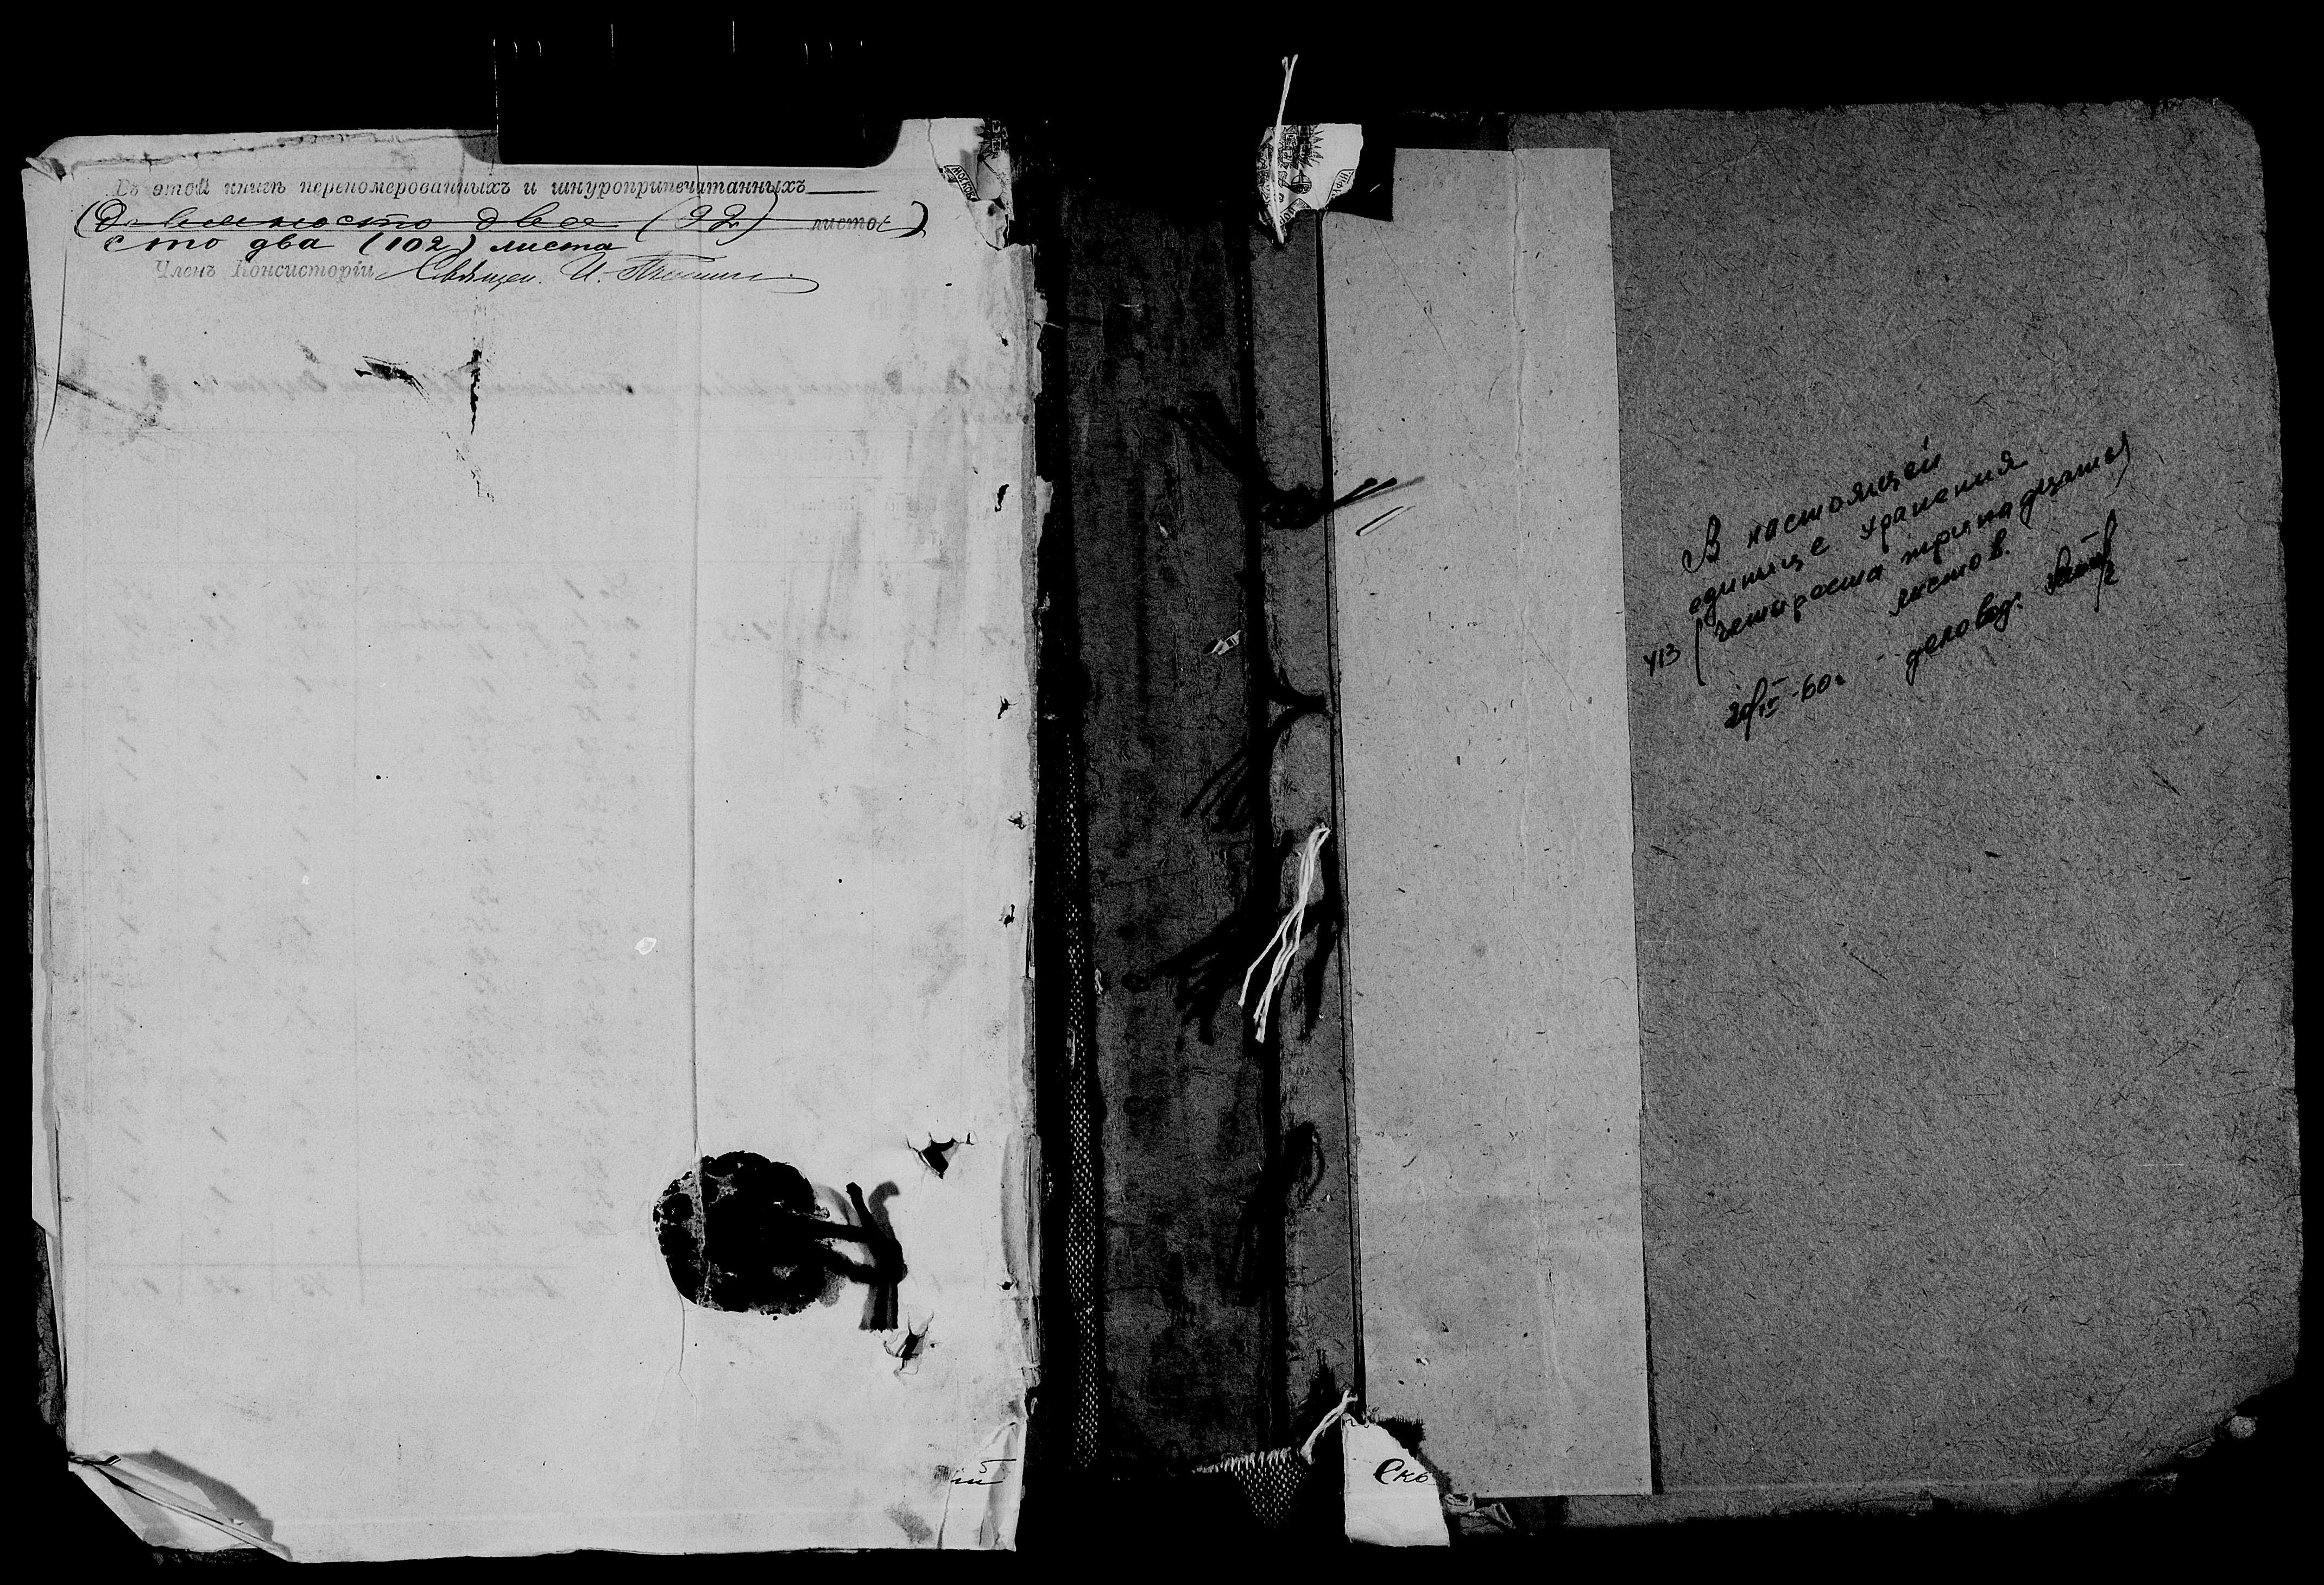 Въ этой книгѣ перепомерованныхъ и шнуроприпечатанныхъ
(Девяносто два (92) листов)
сто два (102) листа
Членъ Консисторіи Священ. И.
В настоящей
единице хранения
413 (четыреста тринадцать)
листов.
20/IV-60г. деловод.
Ско